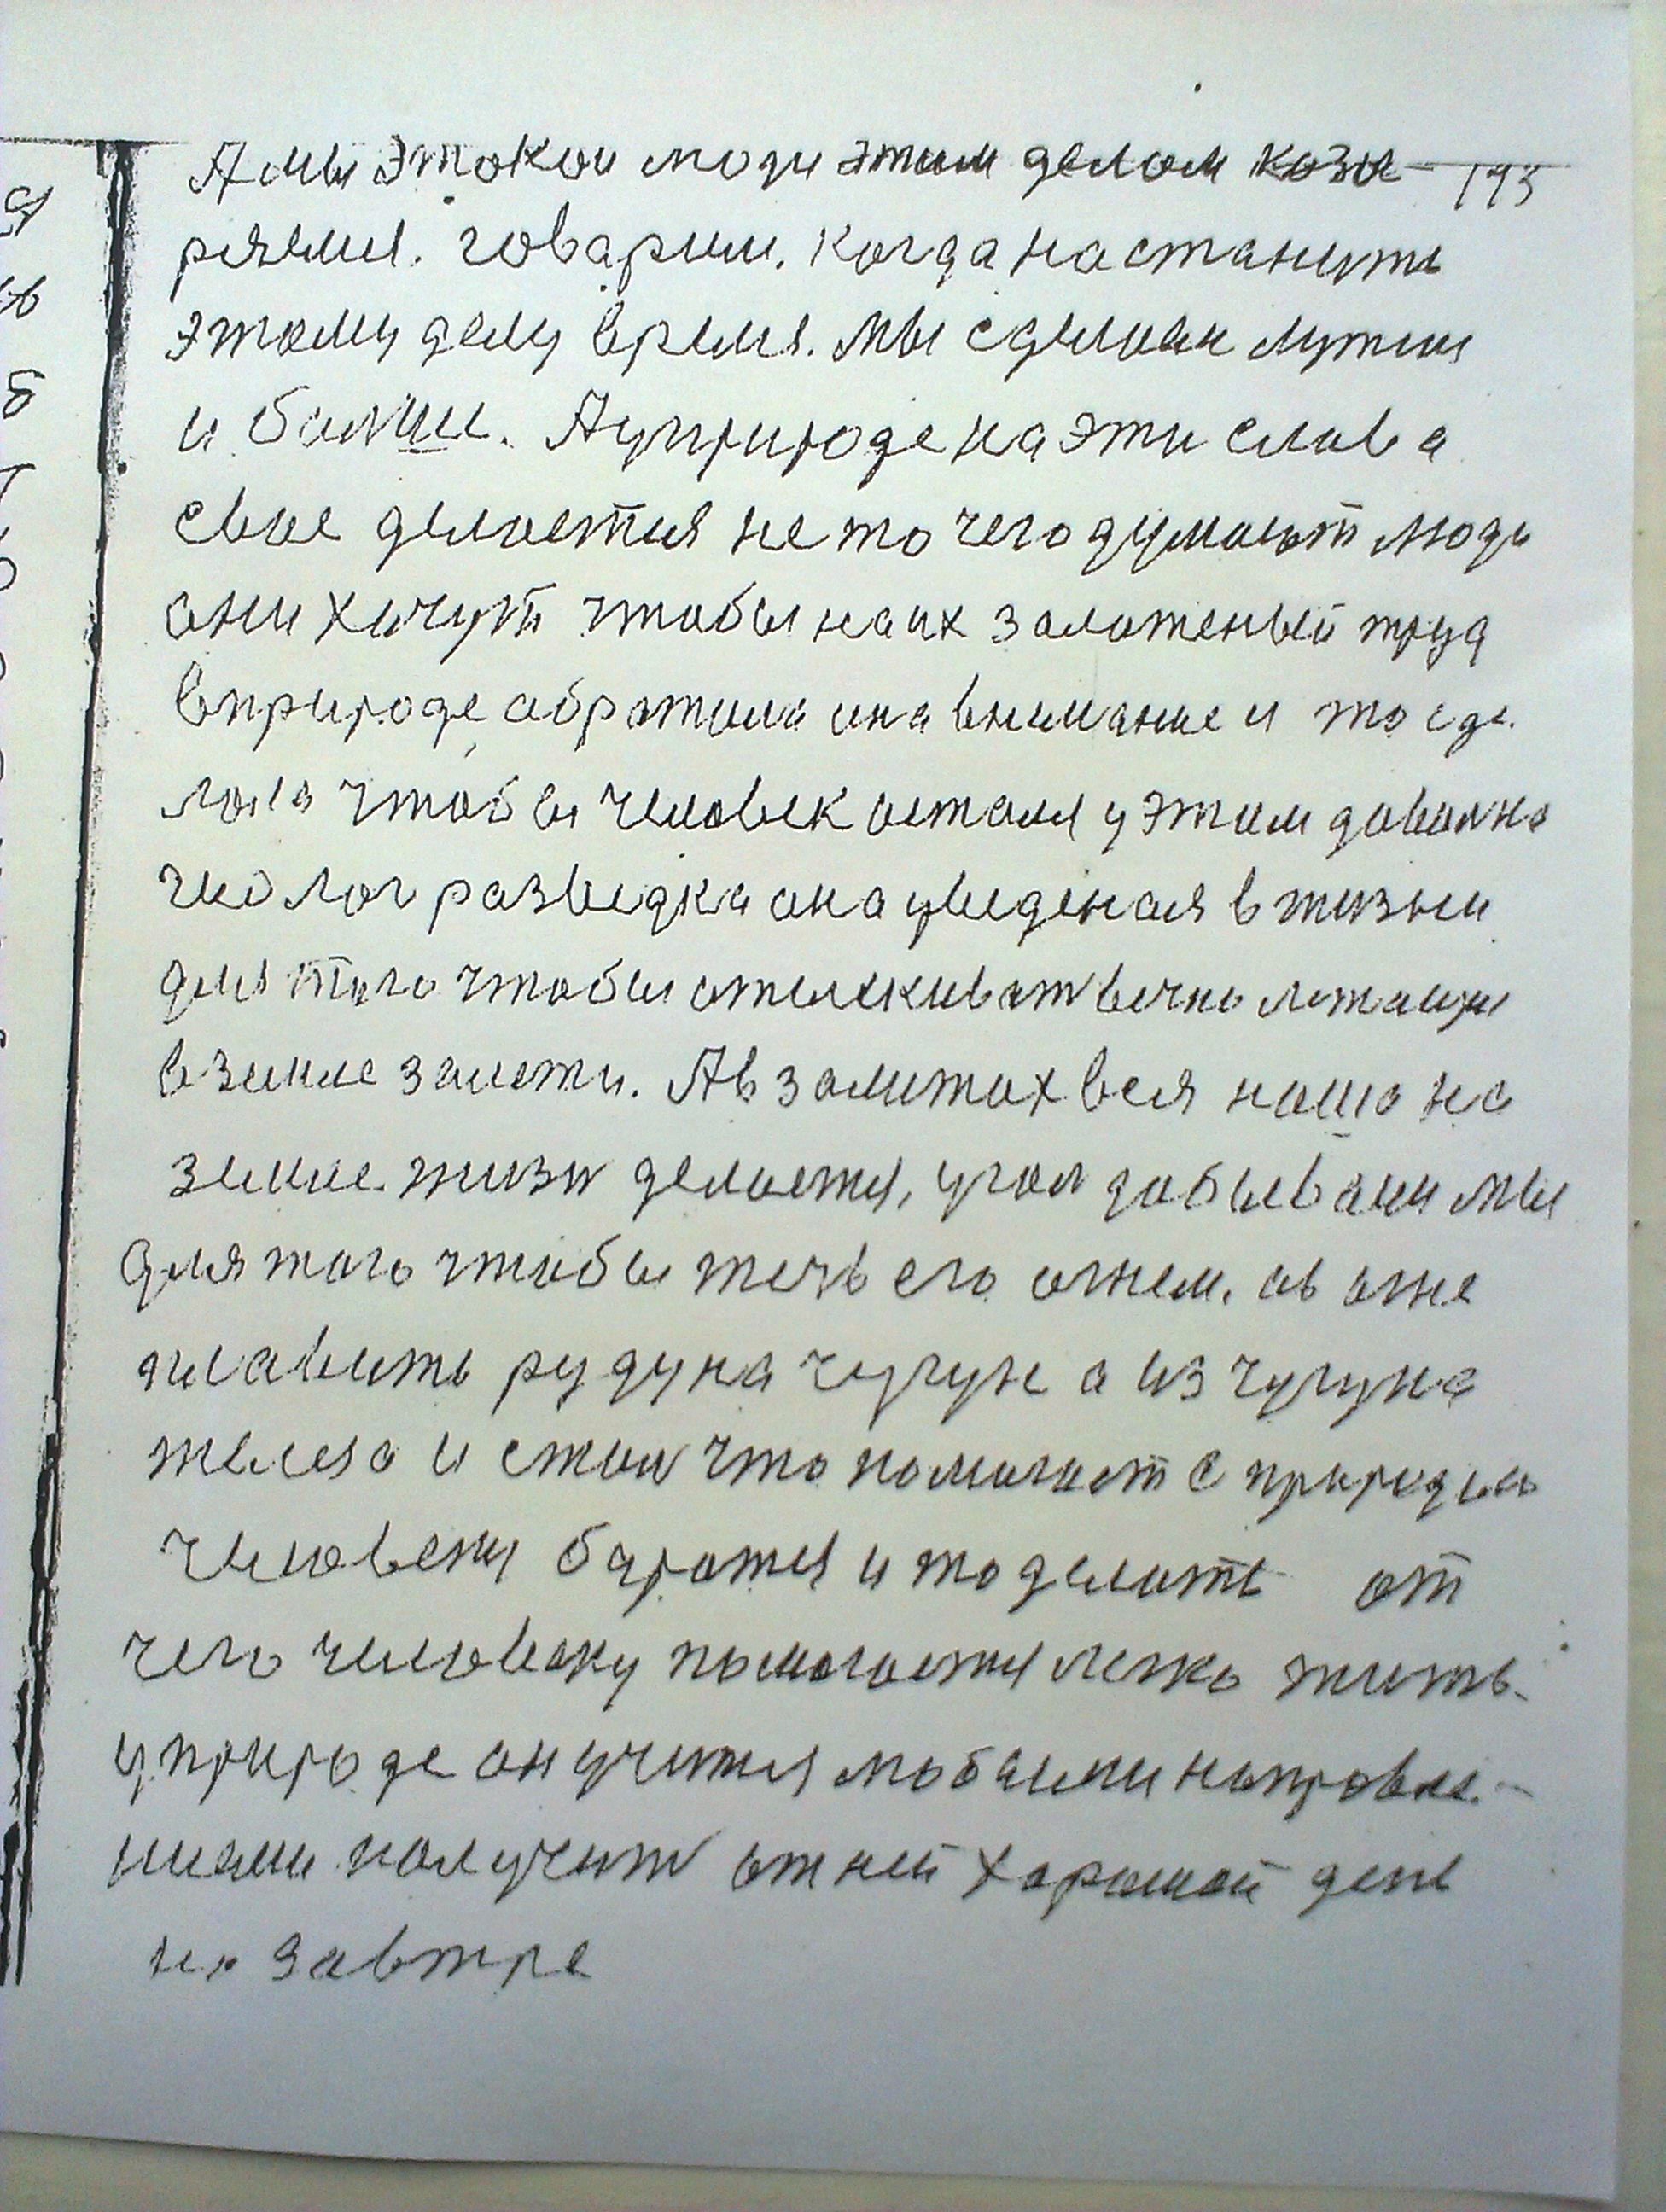 А мы этокои люди этим делом кози- 195
ряемы. говарим. когда настанить
этому делу время. мы сделаем лутши
и болши. А у природе на эти слова
свое делается не то чего думают люди
они хичут чтобы на их заложеный труд
в природе обратила она внимание и то сде.
лала чтобы человек остался у этом доволно
геолог разведка она уведеная в жизни
для того чтобы отыскиват вечно лежащи
в земле залежи. А в залижах вся наша на
земле. жизн делается, угол добываем мы
для того чтобы жечь его огнем. а в огне
плавить руду на чугун а из чугуна
железа и стал что помогает с природыю
человеку баротся и то делать от
чего человеку помогается легко жить.
у природе он учится любыми направле.-
ниями получит от ней хорошой день
на завтре